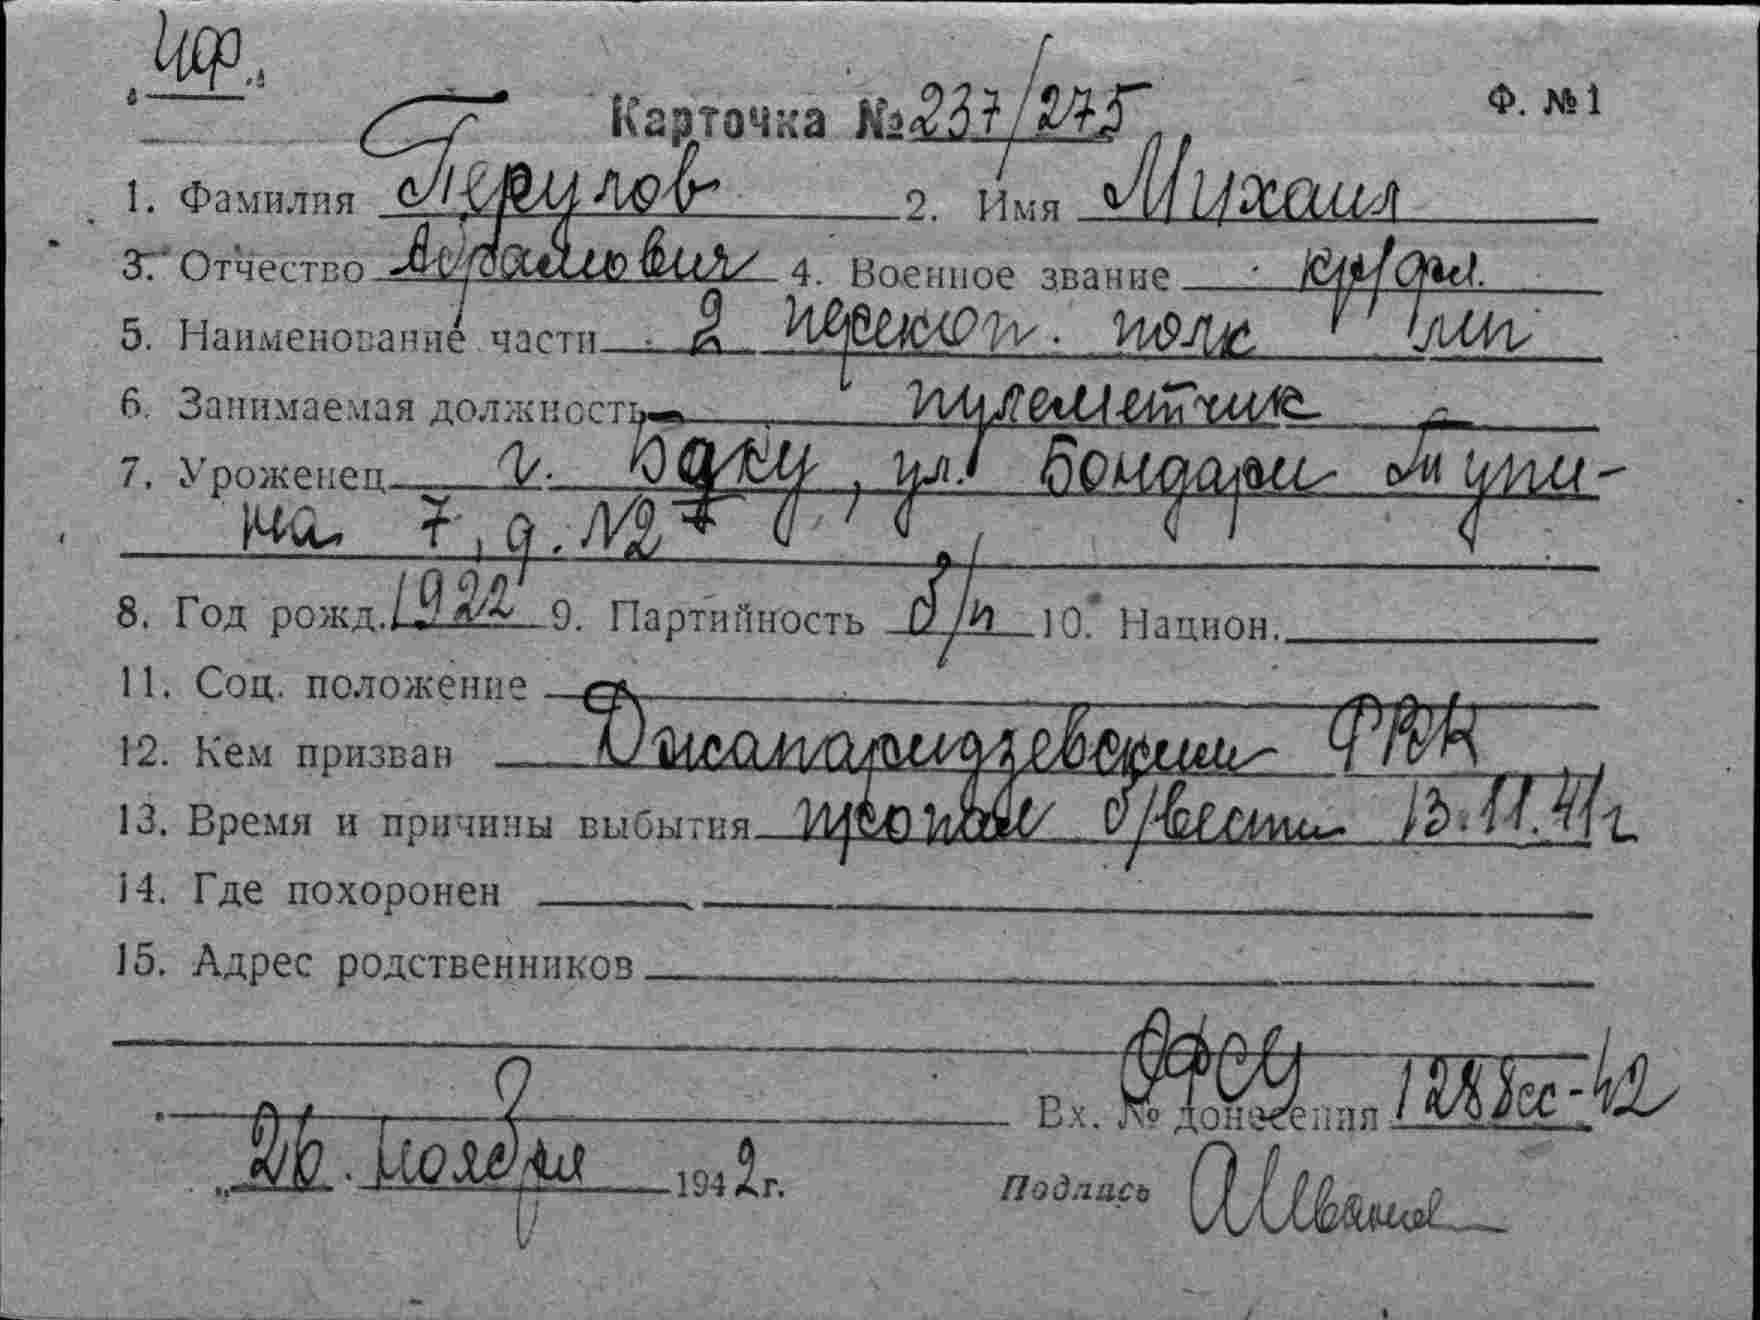 Карточка № 237/275 Ф. №1
1. Фамилия Перулов 2. Имя Михаил
3. Отчество Абрамович 4. Военное звание кр/фл.
5. Наименование части 2 перекоп. полк мп
6. Занимаемая должность пулеметчик
7. Уроженец г. Баку, ул. Бондари Тупи-
ка 7, д. №27
8. Год рожд. 1922 9. Партийность б/п 10. Национ.
11. Соц. положение
12. Кем призван Джапаридзевским РВК
13. Время и причины выбытия пропал б/вести 13.11.41г
14. Где похоронен
15. Адрес родственников
Вх. № донесения 1288сс-42
„26. ноября 1942г. Подпись